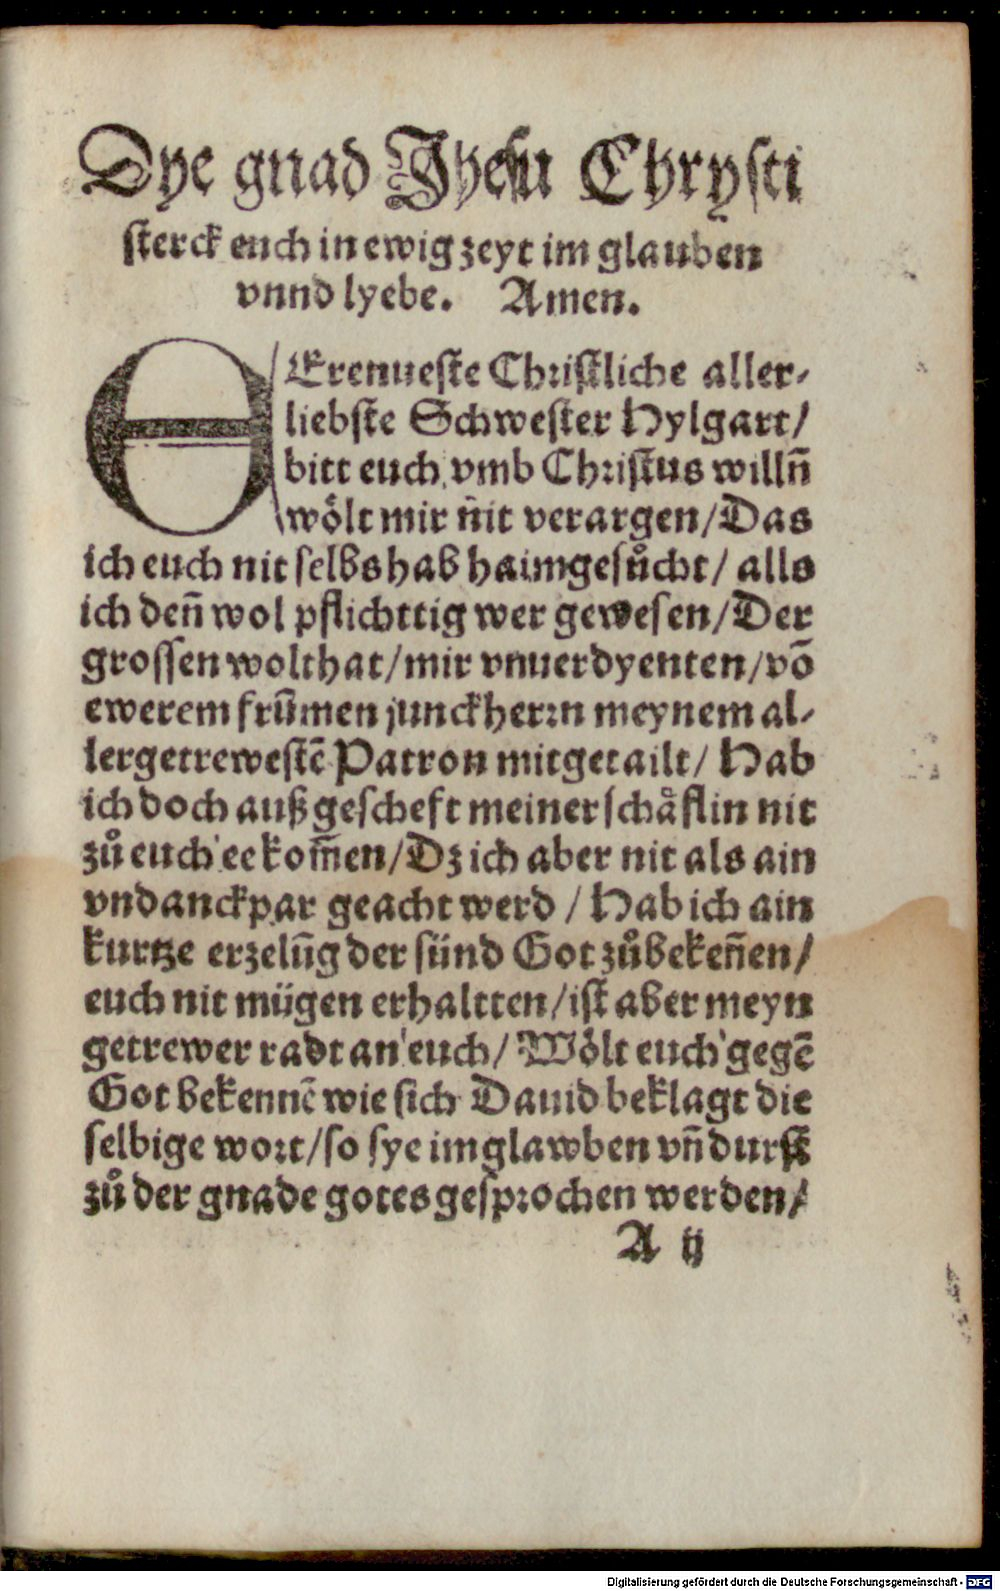 Dye gnad Jhesu Chrysti
sterck euch in ewig zeyt im glauben
vnnd lyebe. Amen.
EErenueste Christliche aller-
liebste Schwester Hylgart/
bitt euch vmb Christus willn̄
wölt mir nit verargen/Das
ich euch nit selbs hab haimgesůcht/ alls
ich den̄ wol pflichttig wer gewesen/Der
grossen wolthat/mir vnuerdyenten/vō
ewerem frūmen junckherrn meynem al-
lergetrewestē Patron mitgetailt/ Hab
ich doch auß gescheft meiner schåflin nit
zů euch ee kom̄en/Dz ich aber nit als ain
vndanckpar geacht werd / Hab ich ain
kurtze erzelūg der sünd Got zůbeken̄en/
euch nit mügen erhaltten/ist aber meyn
getrewer radt an euch/ Wölt euch gegē
Got bekennē wie sich Dauid beklagt die
selbige wort/so sye im glawben vn̄ durst
zů der gnade gotes gesprochen werden/
A ij
Digitalisierung gefördert durch die Deutsche Forschungsgemeinschaft - DFG